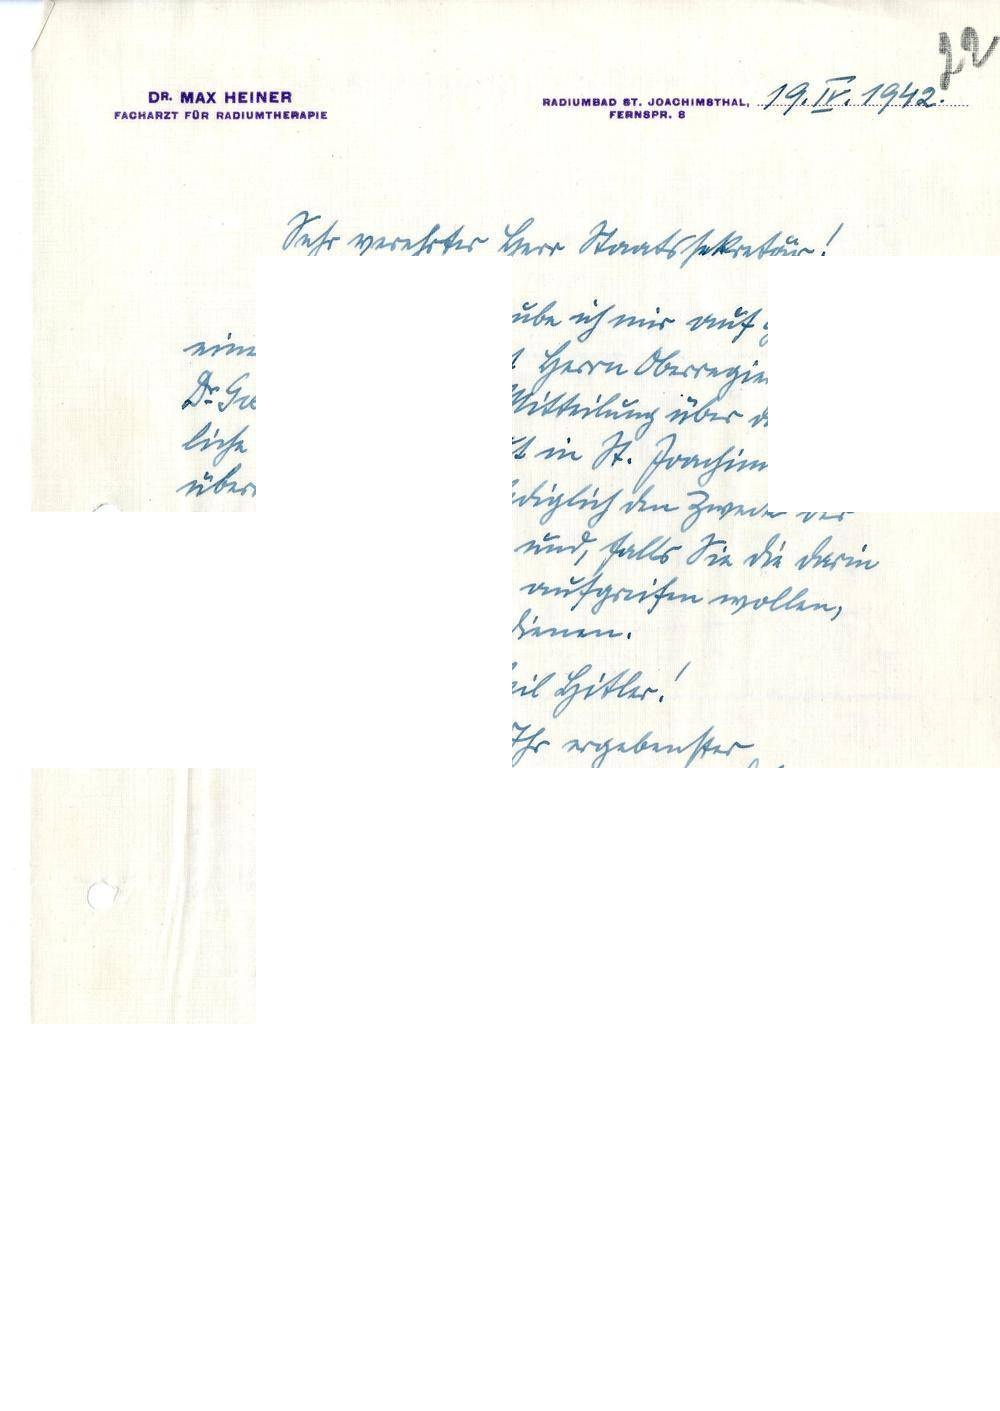 22
DR. MAX HEINER
FACHARZT FÜR RADIUMTHERAPIE
RADIUMBAD ST. JOACHIMSTHAL, 19. IV. 1942.
FERNSPR. 8
Sehr verehrter Herr Staatssekretär!
ube ich mir auf
eine
Herrn Oberregie
Dr. Ga
Mitteilung über d
liche
t in St. Joachim
über
diglich den Zweck der
und, falls Sie die darin
aufgreifen wollen,
dienen.
eil Hitler!
Ihr ergebenster